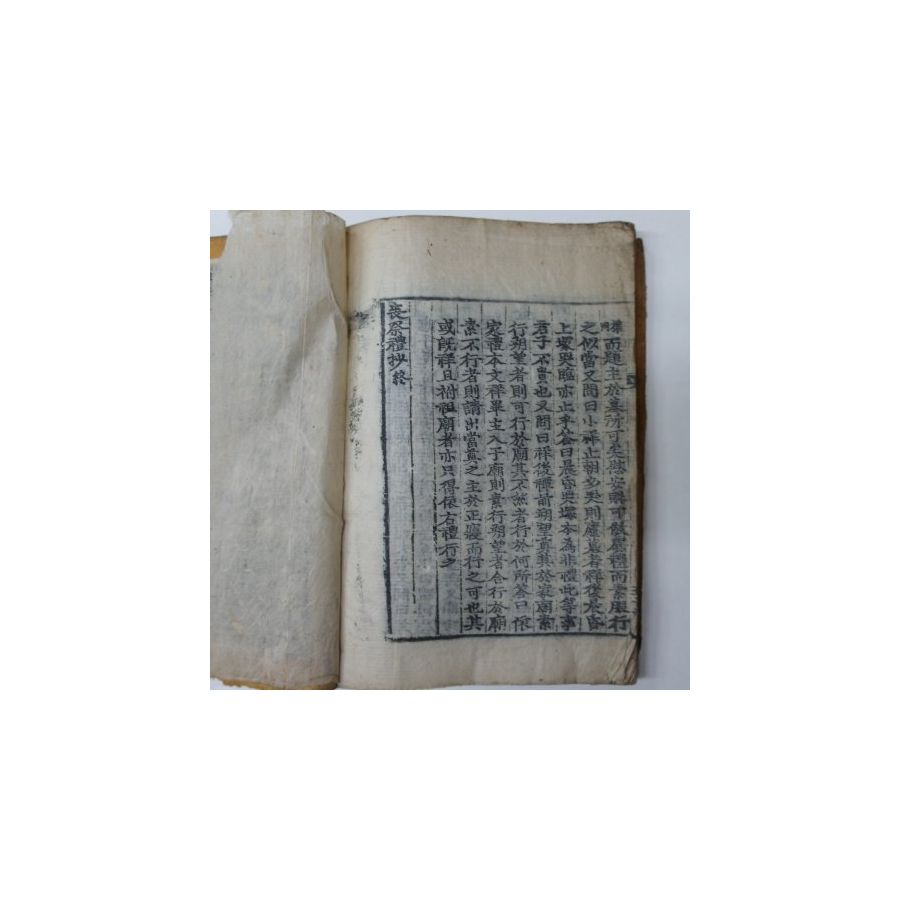 葬而題主於墓所可矣愁安歸可散麻禮而素服行
之似當又問曰小祥止朝夕哭則廬墓者祥後晨昏
上塚哭臨亦止乎答曰晨昏哭塚本為非禮此等事
君子不貴也又問曰祥後禫前朔望奠其於家廟素
行朔望者則可行於廟其不然者行於何所答曰依
家禮本文祥畢主入于廟則素行朔望者合行於廟
素不行者則請出當奠之主於正寢而行之可也其
或既祥且祔祖廟者亦只得依右禮行之
喪祭禮抄 終